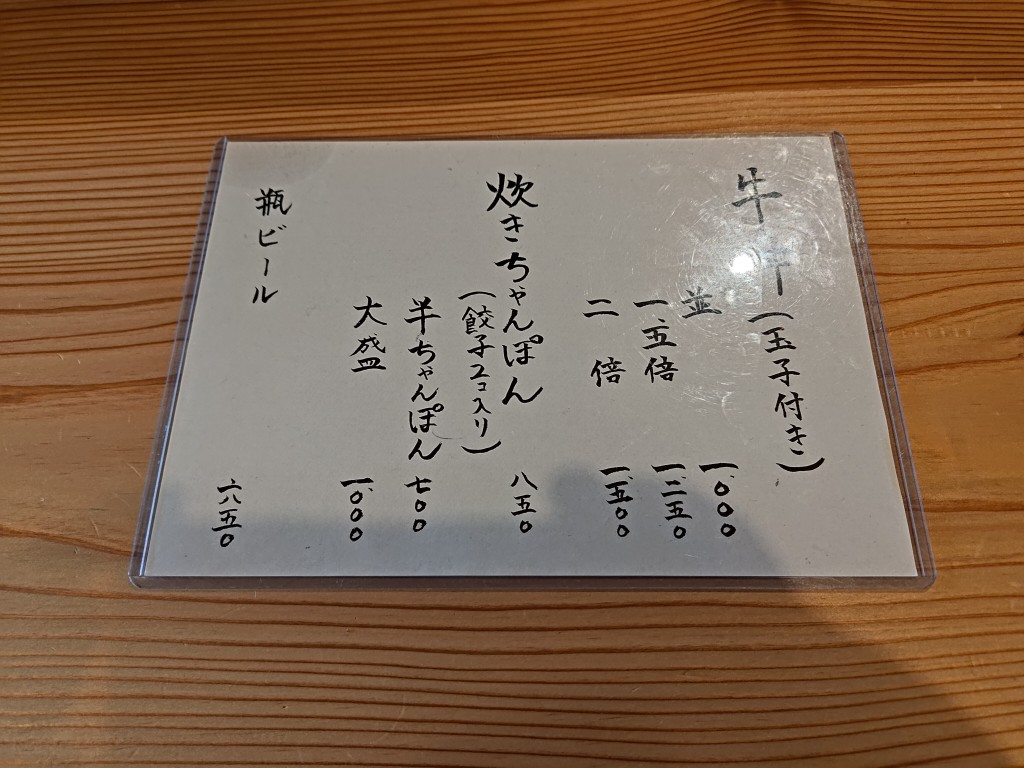 牛丼(玉子付き)
並 一、〇〇〇
一、五倍 一、二五〇
二倍 一、五〇〇
炊きちゃんぽん 八五〇
(餃子2コ入り)
半ちゃんぽん 七〇〇
大盛 一、〇〇〇
瓶ビール 六五〇